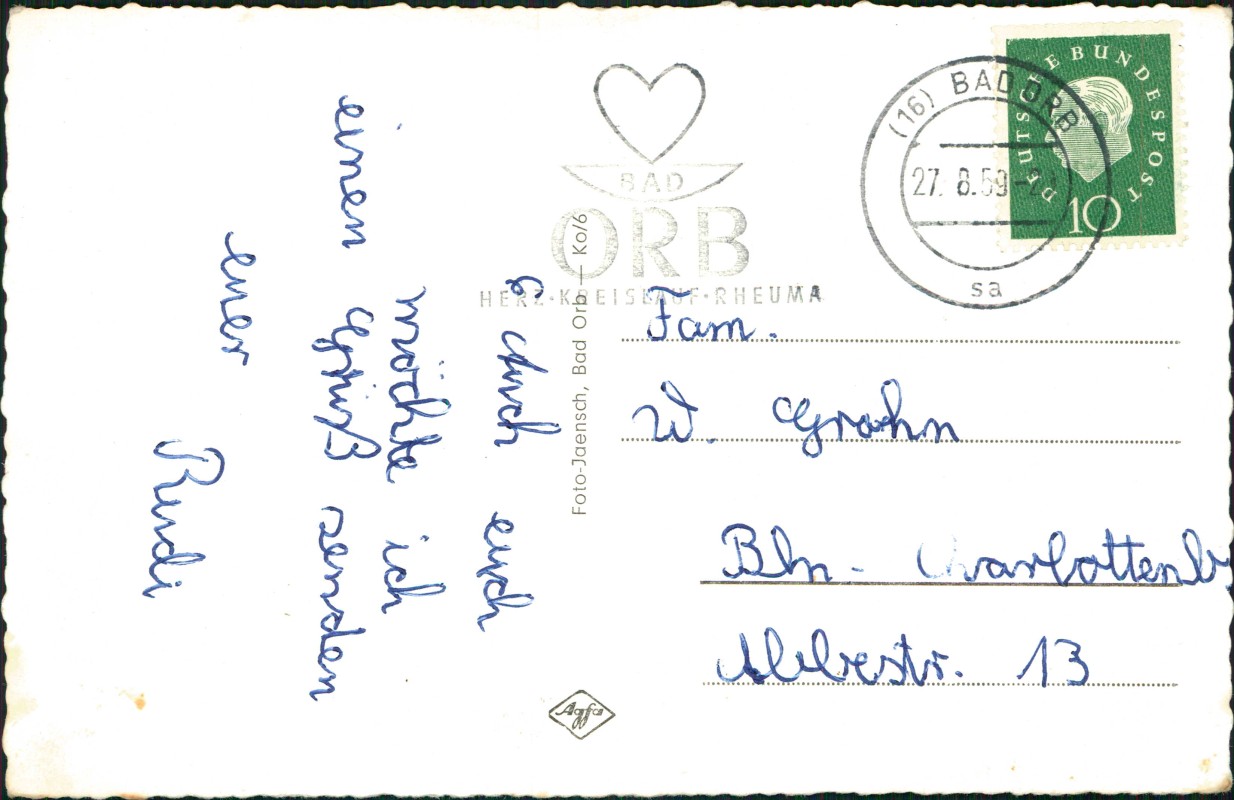 Auch euch
möchte ich
einen Gruß senden
euer
Rudi
BAD
ORB
HERZ·KREISLAUF·RHEUMA
(16) BAD ORB
27. 8.59
sa
DEUTSCHE BUNDESPOST
10
Foto-Jaensch, Bad Orb — Ko/6
Fam.
W. Grahn
Bln - Charlottenb
13
Agfa